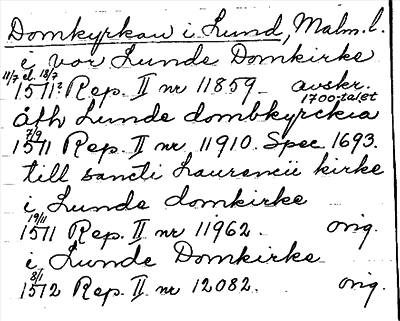 Domkyrkan i Lund, Malm. l.
i vor Lunde Domkirke
11/7 el. 18/7
1511? Rep. II nr 11859. avskr.
1700-talet
åth Lunde dombkyrckia
7/9
1511 Rep. II nr 11910. Spec 1693.
till sancti Laurencii kirke
i Lunde domkirke
19/11
1511 Rep. II nr 11962. orig.
i Lunde Domkirke
8/1
1512 Rep. II nr 12082. orig.